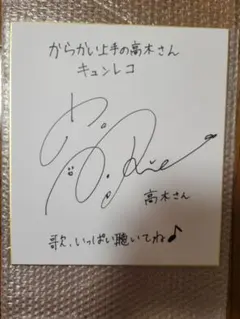 からかい上手の高木さん
キュンレコ
高木さん
歌、いっぱい聴いてね♪